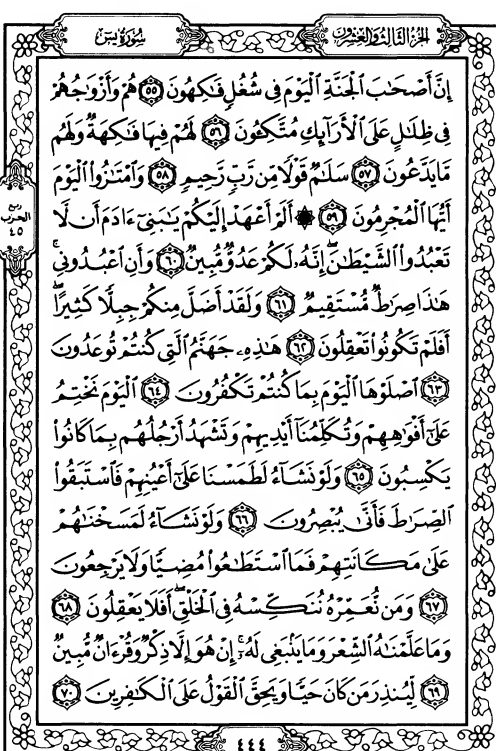 سُورَةُ يسٓ
الجُزءُ الثَّالِثُ وَالعِشْرُونَ
إِنَّ أَصۡحَٰبَ ٱلۡجَنَّةِ ٱلۡيَوۡمَ فِي شُغُلٖ فَٰكِهُونَ ٥٥ هُمۡ وَأَزۡوَٰجُهُمۡ
فِي ظِلَٰلٍ عَلَى ٱلۡأَرَآئِكِ مُتَّكِـُٔونَ ٥٦ لَهُمۡ فِيهَا فَٰكِهَةٞ وَلَهُم
مَّا يَدَّعُونَ ٥٧ سَلَٰمٞ قَوۡلٗا مِّن رَّبّٖ رَّحِيمٖ ٥٨ وَٱمۡتَٰزُواْ ٱلۡيَوۡمَ
أَيُّهَا ٱلۡمُجۡرِمُونَ ٥٩ ۞ أَلَمۡ أَعۡهَدۡ إِلَيۡكُمۡ يَٰبَنِيٓ ءَادَمَ أَن لَّا
تَعۡبُدُواْ ٱلشَّيۡطَٰنَۖ إِنَّهُۥ لَكُمۡ عَدُوّٞ مُّبِينٞ ٦٠ وَأَنِ ٱعۡبُدُونِيۚ
هَٰذَا صِرَٰطٞ مُّسۡتَقِيمٞ ٦١ وَلَقَدۡ أَضَلَّ مِنكُمۡ جِبِلّٗا كَثِيرًاۖ
أَفَلَمۡ تَكُونُواْ تَعۡقِلُونَ ٦٢ هَٰذِهِۦ جَهَنَّمُ ٱلَّتِي كُنتُمۡ تُوعَدُونَ
٦٣ ٱصۡلَوۡهَا ٱلۡيَوۡمَ بِمَا كُنتُمۡ تَكۡفُرُونَ ٦٤ ٱلۡيَوۡمَ نَخۡتِمُ
عَلَىٰٓ أَفۡوَٰهِهِمۡ وَتُكَلِّمُنَآ أَيۡدِيهِمۡ وَتَشۡهَدُ أَرۡجُلُهُم بِمَا كَانُواْ
يَكۡسِبُونَ ٦٥ وَلَوۡ نَشَآءُ لَطَمَسۡنَا عَلَىٰٓ أَعۡيُنِهِمۡ فَٱسۡتَبَقُواْ
ٱلصِّرَٰطَ فَأَنَّىٰ يُبۡصِرُونَ ٦٦ وَلَوۡ نَشَآءُ لَمَسَخۡنَٰهُمۡ
عَلَىٰ مَكَانَتِهِمۡ فَمَا ٱسۡتَطَٰعُواْ مُضِيّٗا وَلَا يَرۡجِعُونَ
٦٧ وَمَن نُّعَمِّرۡهُ نُنَكِّسۡهُ فِي ٱلۡخَلۡقِۚ أَفَلَا يَعۡقِلُونَ ٦٨
وَمَا عَلَّمۡنَٰهُ ٱلشِّعۡرَ وَمَا يَنۢبَغِي لَهُۥٓۚ إِنۡ هُوَ إِلَّا ذِكۡرٞ وَقُرۡءَانٞ مُّبِينٞ
٦٩ لِّيُنذِرَ مَن كَانَ حَيّٗا وَيَحِقَّ ٱلۡقَوۡلُ عَلَى ٱلۡكَٰفِرِينَ ٧٠
ربع
الحزب
٤٥
٤٤٤